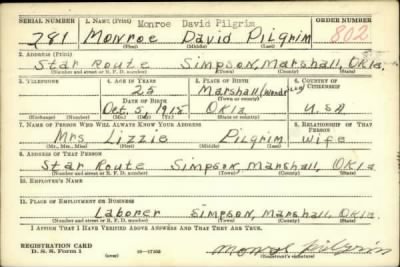 SERIAL NUMBER 1. NAME (Print) Monroe David Pilgrim ORDER NUMBER
781 Monroe David Pilgrim 802
(First) (Middle) (Last)
2. ADDRESS (Print)
Star Route Simpson, Marshall, Okla.
(Number and street or R. F. D. number) (Town) (County) (State)
3. TELEPHONE 4. AGE IN YEARS 5. PLACE OF BIRTH 6. COUNTRY OF CITIZENSHIP
25 Marshall
DATE OF BIRTH (Town or county)
Oct. 5, 1915 Okla. U.S.A
(Exchange) (Number) (Mo.) (Day) (Yr.) (State or country)
7. NAME OF PERSON WHO WILL ALWAYS KNOW YOUR ADDRESS 8. RELATIONSHIP OF THAT PERSON
Mrs Lizzie Pilgrim Wife
(Mr., Mrs., Miss) (First) (Middle) (Last)
9. ADDRESS OF THAT PERSON
Star Route Simpson, Marshall, Okla
(Number and street or R. F. D. number) (Town) (County) (State)
10. EMPLOYER'S NAME
11. PLACE OF EMPLOYMENT OR BUSINESS
Laborer Simpson, Marshall, Okla.
(Number and street or R. F. D. number) (Town) (County) (State)
I AFFIRM THAT I HAVE VERIFIED ABOVE ANSWERS AND THAT THEY ARE TRUE.
REGISTRATION CARD
D. S. S. Form 1 (over) Monroe Pilgrim
(Registrant's signature)